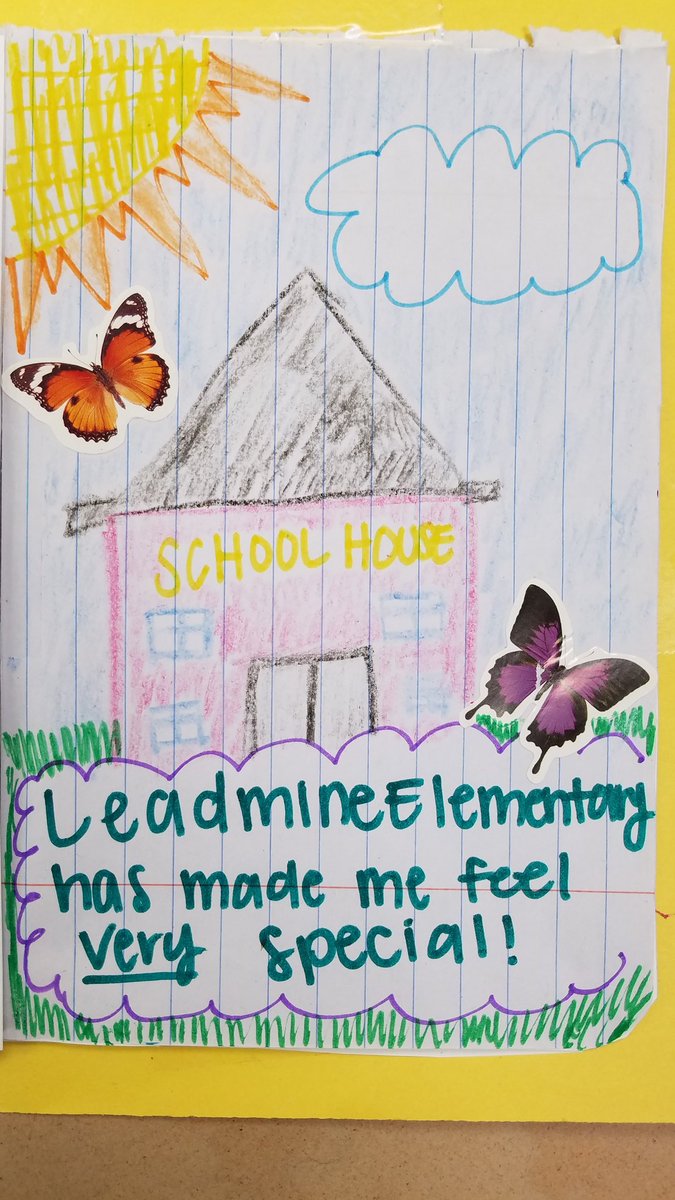 SCHOOL HOUSE
Leadmine Elementary
has made me feel
very special!